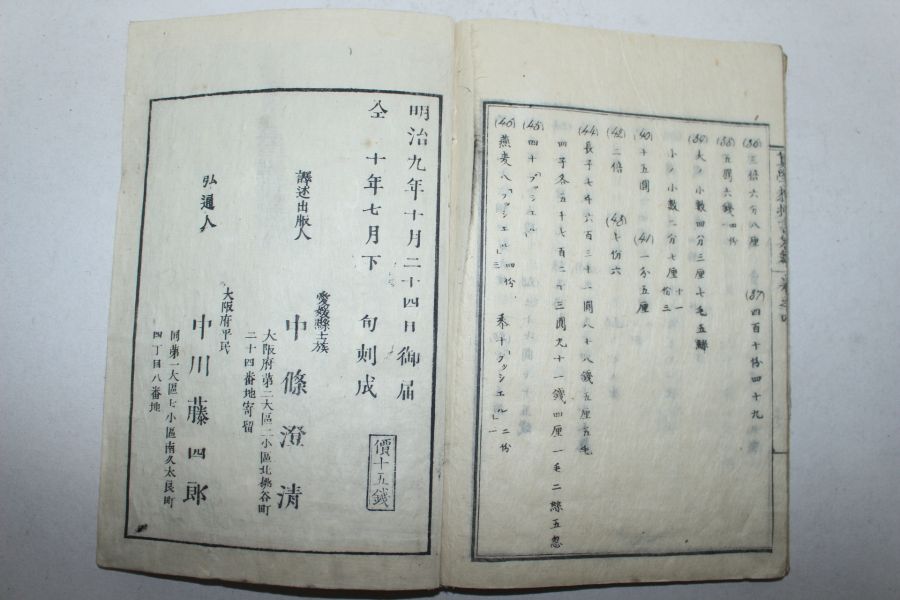 (36) 三倍六分八厘
(37) 四百十份四十九
(38) 五圓六錢 四份一
(39) 大ノ小數四分三厘七毛五絲
小ノ小數二分七厘 十一份三
(40) 十五圓 (41) 一分五厘
(42) 二倍 (43) 七份六
(44) 長子七千六百三十三圓八十八錢五厘五毛
四子各五千七百二十三圓九十一錢四厘一毛二絲五忽
(45) 四十「ブッシェル」
(46) 燕麦八「ブッシェル」四份三 麥十「ブッシェル」二份一
明治九年十月二十四日御届
仝 十年七月下旬刻成
價十五錢
譯述出版人
愛媛縣士族
中條澄清
大阪府第二大區二小區北桃谷町
二十四番地寄留
弘通人
大阪府平民
中川藤四郎
同第一大區七小區南久太良町
四丁目八番地